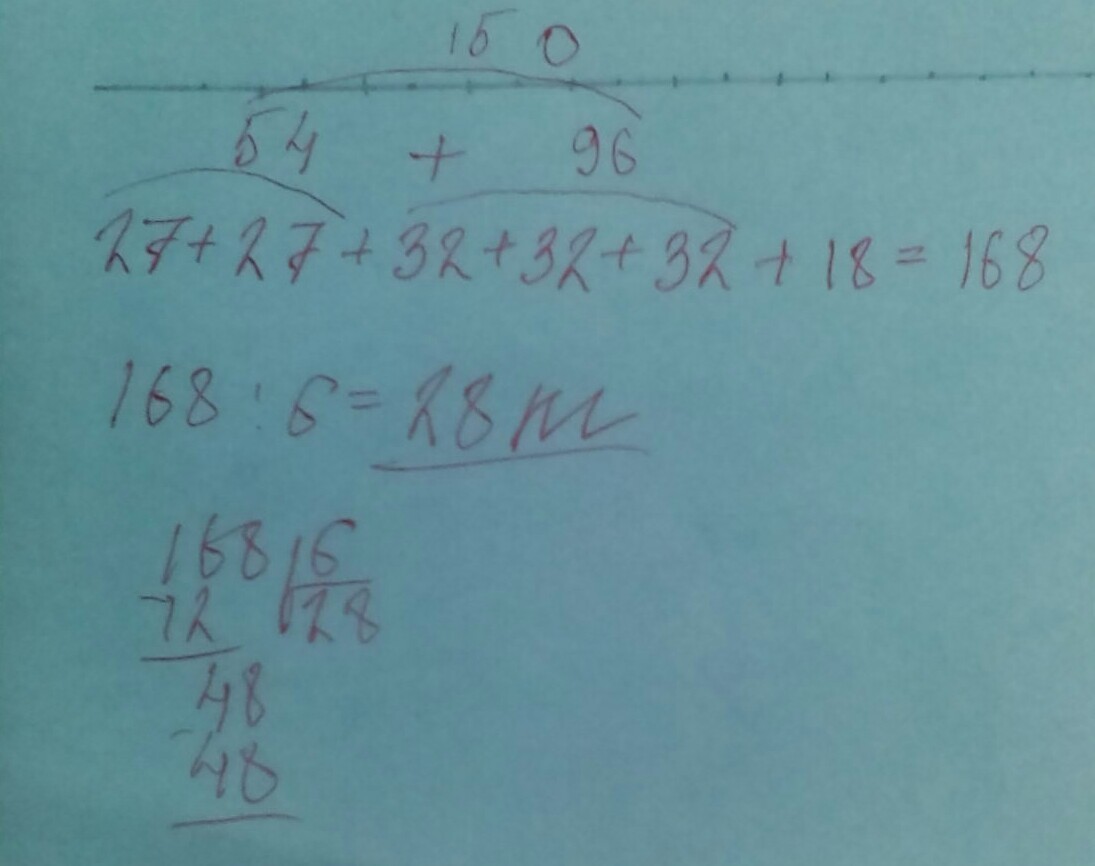 150
54 + 96
27+27+32+32+32+18=168
168:6=28 m
168 6
-12 28
48
-48